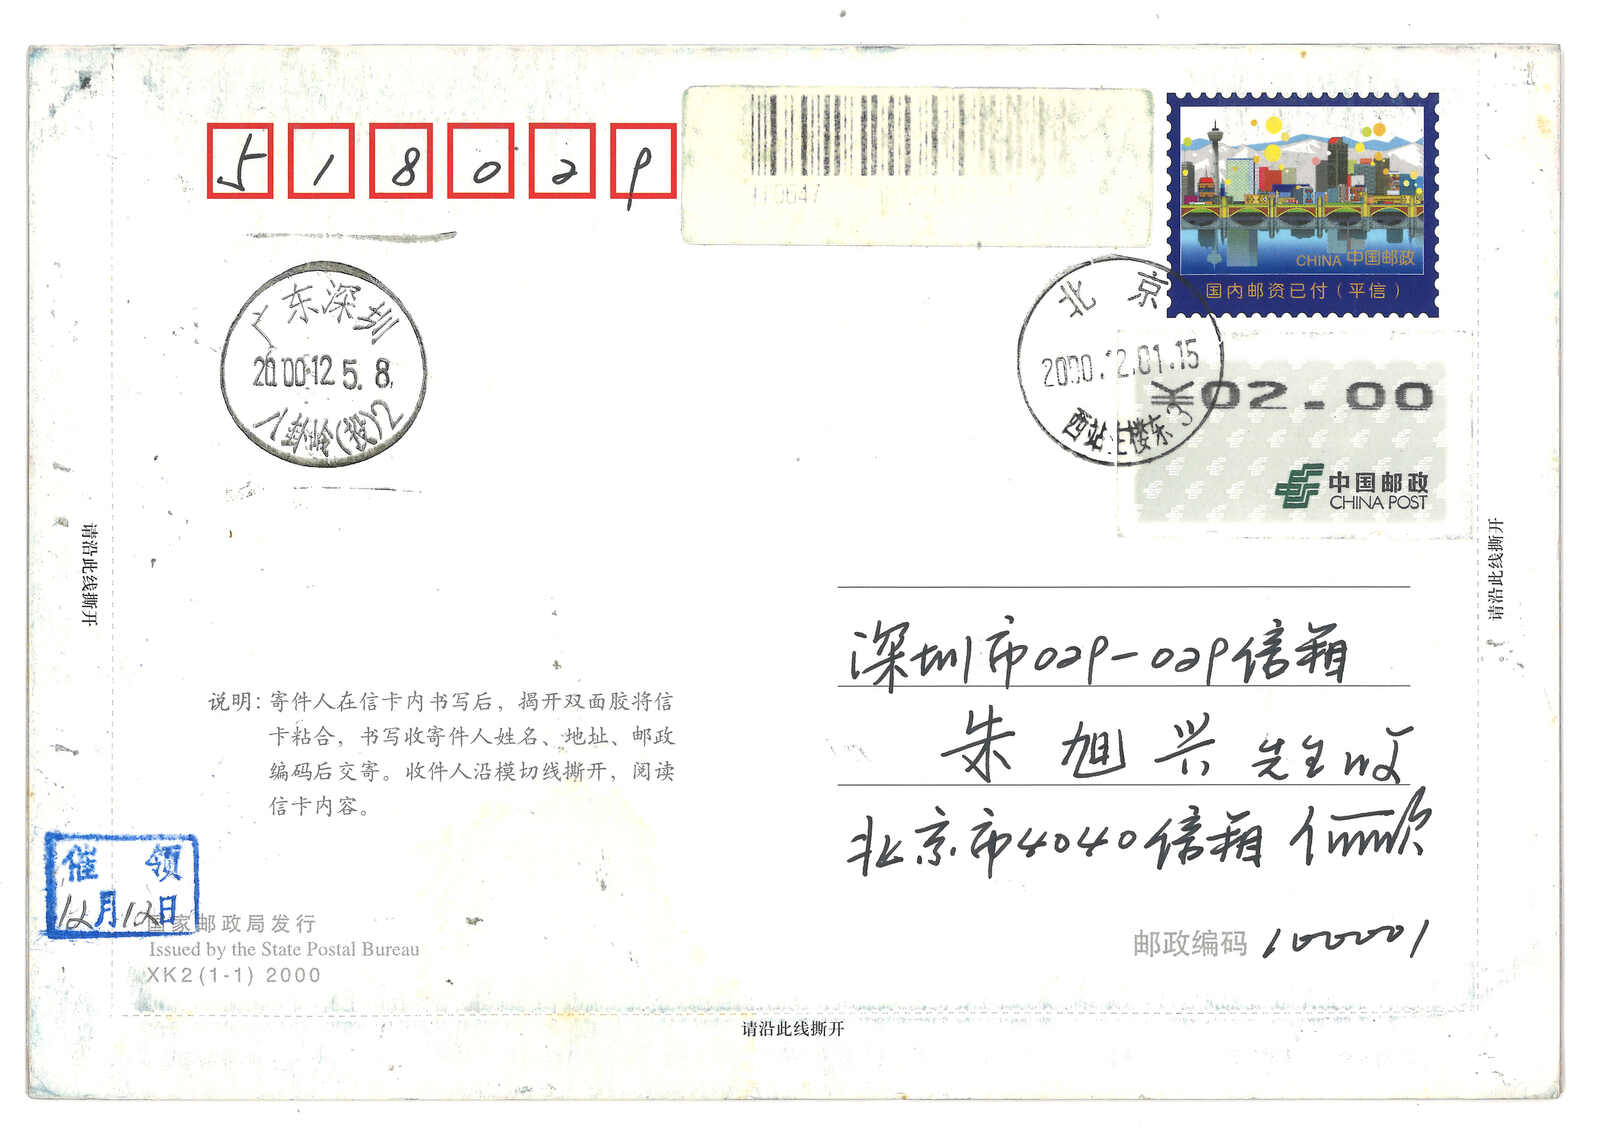 518029
110647
CHINA 中国邮政
国内邮资已付(平信)
广东深圳
2000.12 5.8
八卦岭(投)2
北京
2000.12.01.15
西站主楼东3
¥02.00
中国邮政
CHINA POST
请沿此线撕开
请沿此线撕开
深圳市029-029信箱
朱旭兴 先生收
北京市4040信箱
邮政编码 100001
说明:寄件人在信卡内书写后,揭开双面胶将信
卡粘合,书写收寄件人姓名、地址、邮政
编码后交寄。收件人沿模切线撕开,阅读
信卡内容。
催领
12月12日
国家邮政局发行
Issued by the State Postal Bureau
XK2(1-1) 2000
请沿此线撕开